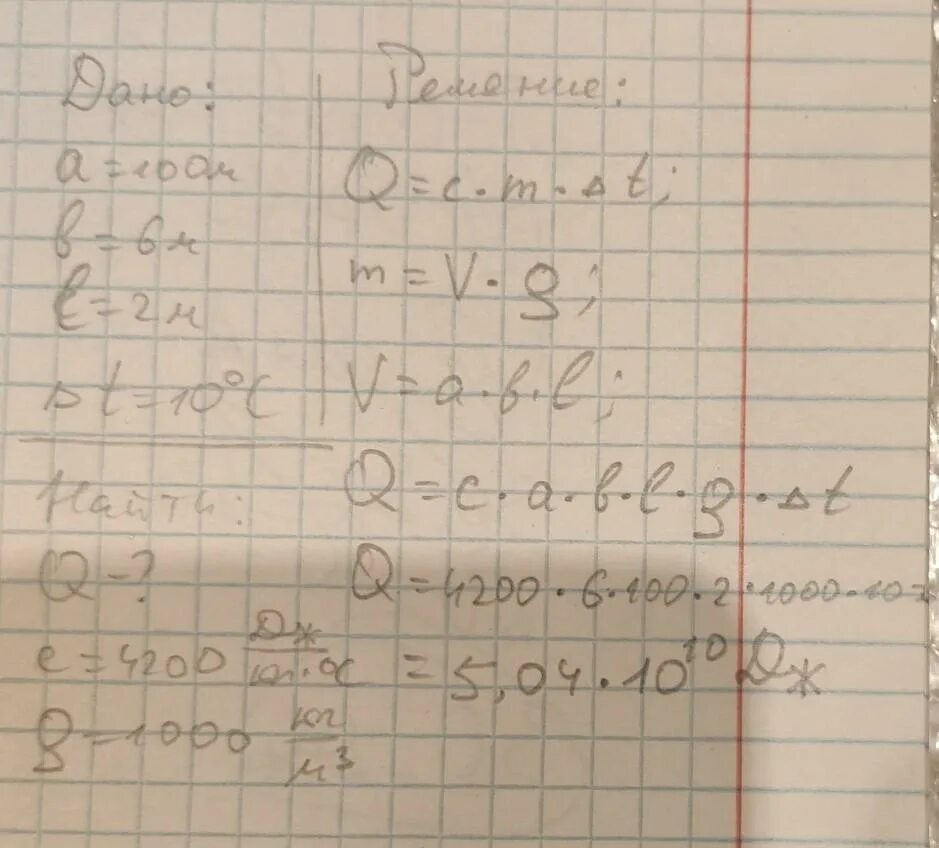 Дано:
a = 100м
в = 6м
ℓ = 2м
Δt = 10°C
Найти:
Q - ?
c = 4200 Дж/кг·°C
ρ = 1000 кг/м³
Решение:
Q = c · m · Δt;
m = V · ρ;
V = a · в · ℓ;
Q = c · a · в · ℓ · ρ · Δt
Q = 4200 · 6 · 100 · 2 · 1000 · 10 =
= 5,04 · 10¹⁰ Дж